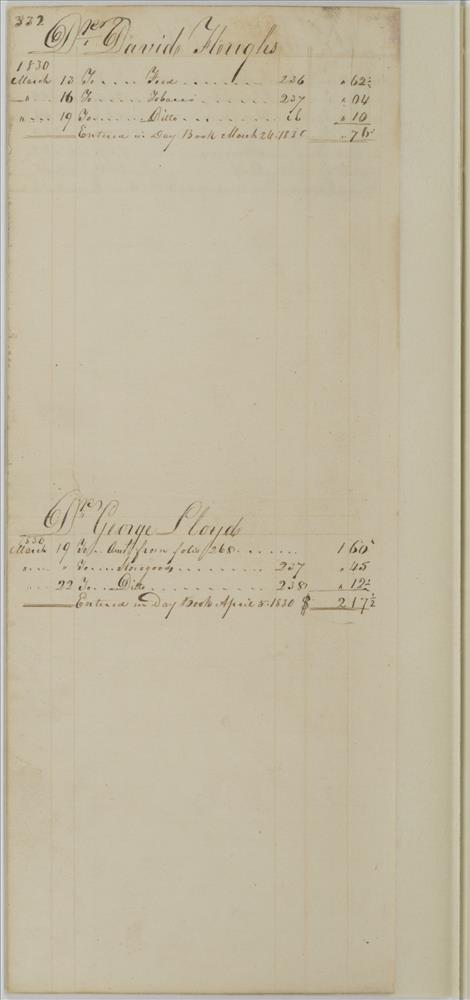 332
Dr. David Hughs
1830
March 13 To .... Feed ........ 236 " 62½
" 16 To ..... Tobacco ...... 237 " 04
" ... 19 To ..... Ditto ....... ib " 10
Entered in Day Book March 24. 1830 " 76
Dr. George Lloyd
1830
March 19 To .. Amt. from folio 268 ...... 1 60
" ... " To ... Storegoods ........ 237 " 45
" 22 To .. Ditto ......... 238 " 12½
Entered in Day Book April 5. 1830 $ 2 17½